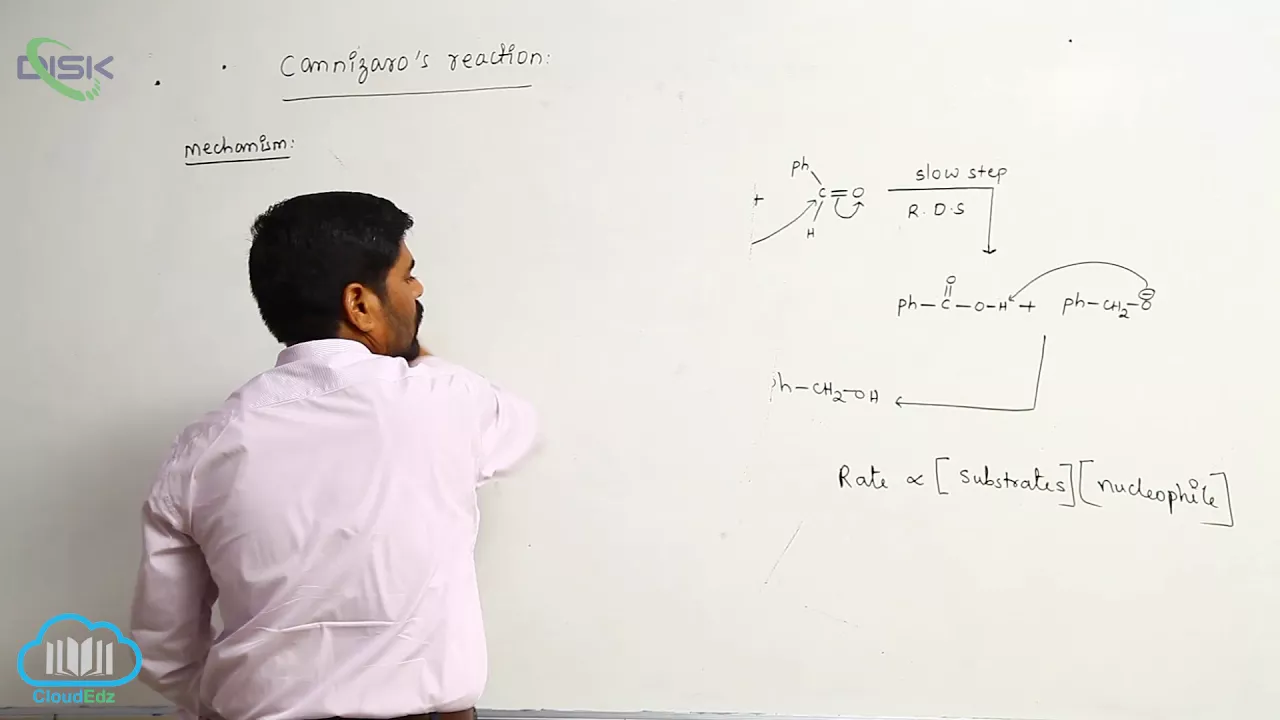 DISK
Cannizaro's reaction:
mechanism:
ph
+ C=O
H
slow step
R.D.S
O
ph-C-O-H + ph-CH2-O⊖
ph-CH2-OH
Rate ∝ [substrates][nucleophile]
CloudEdz